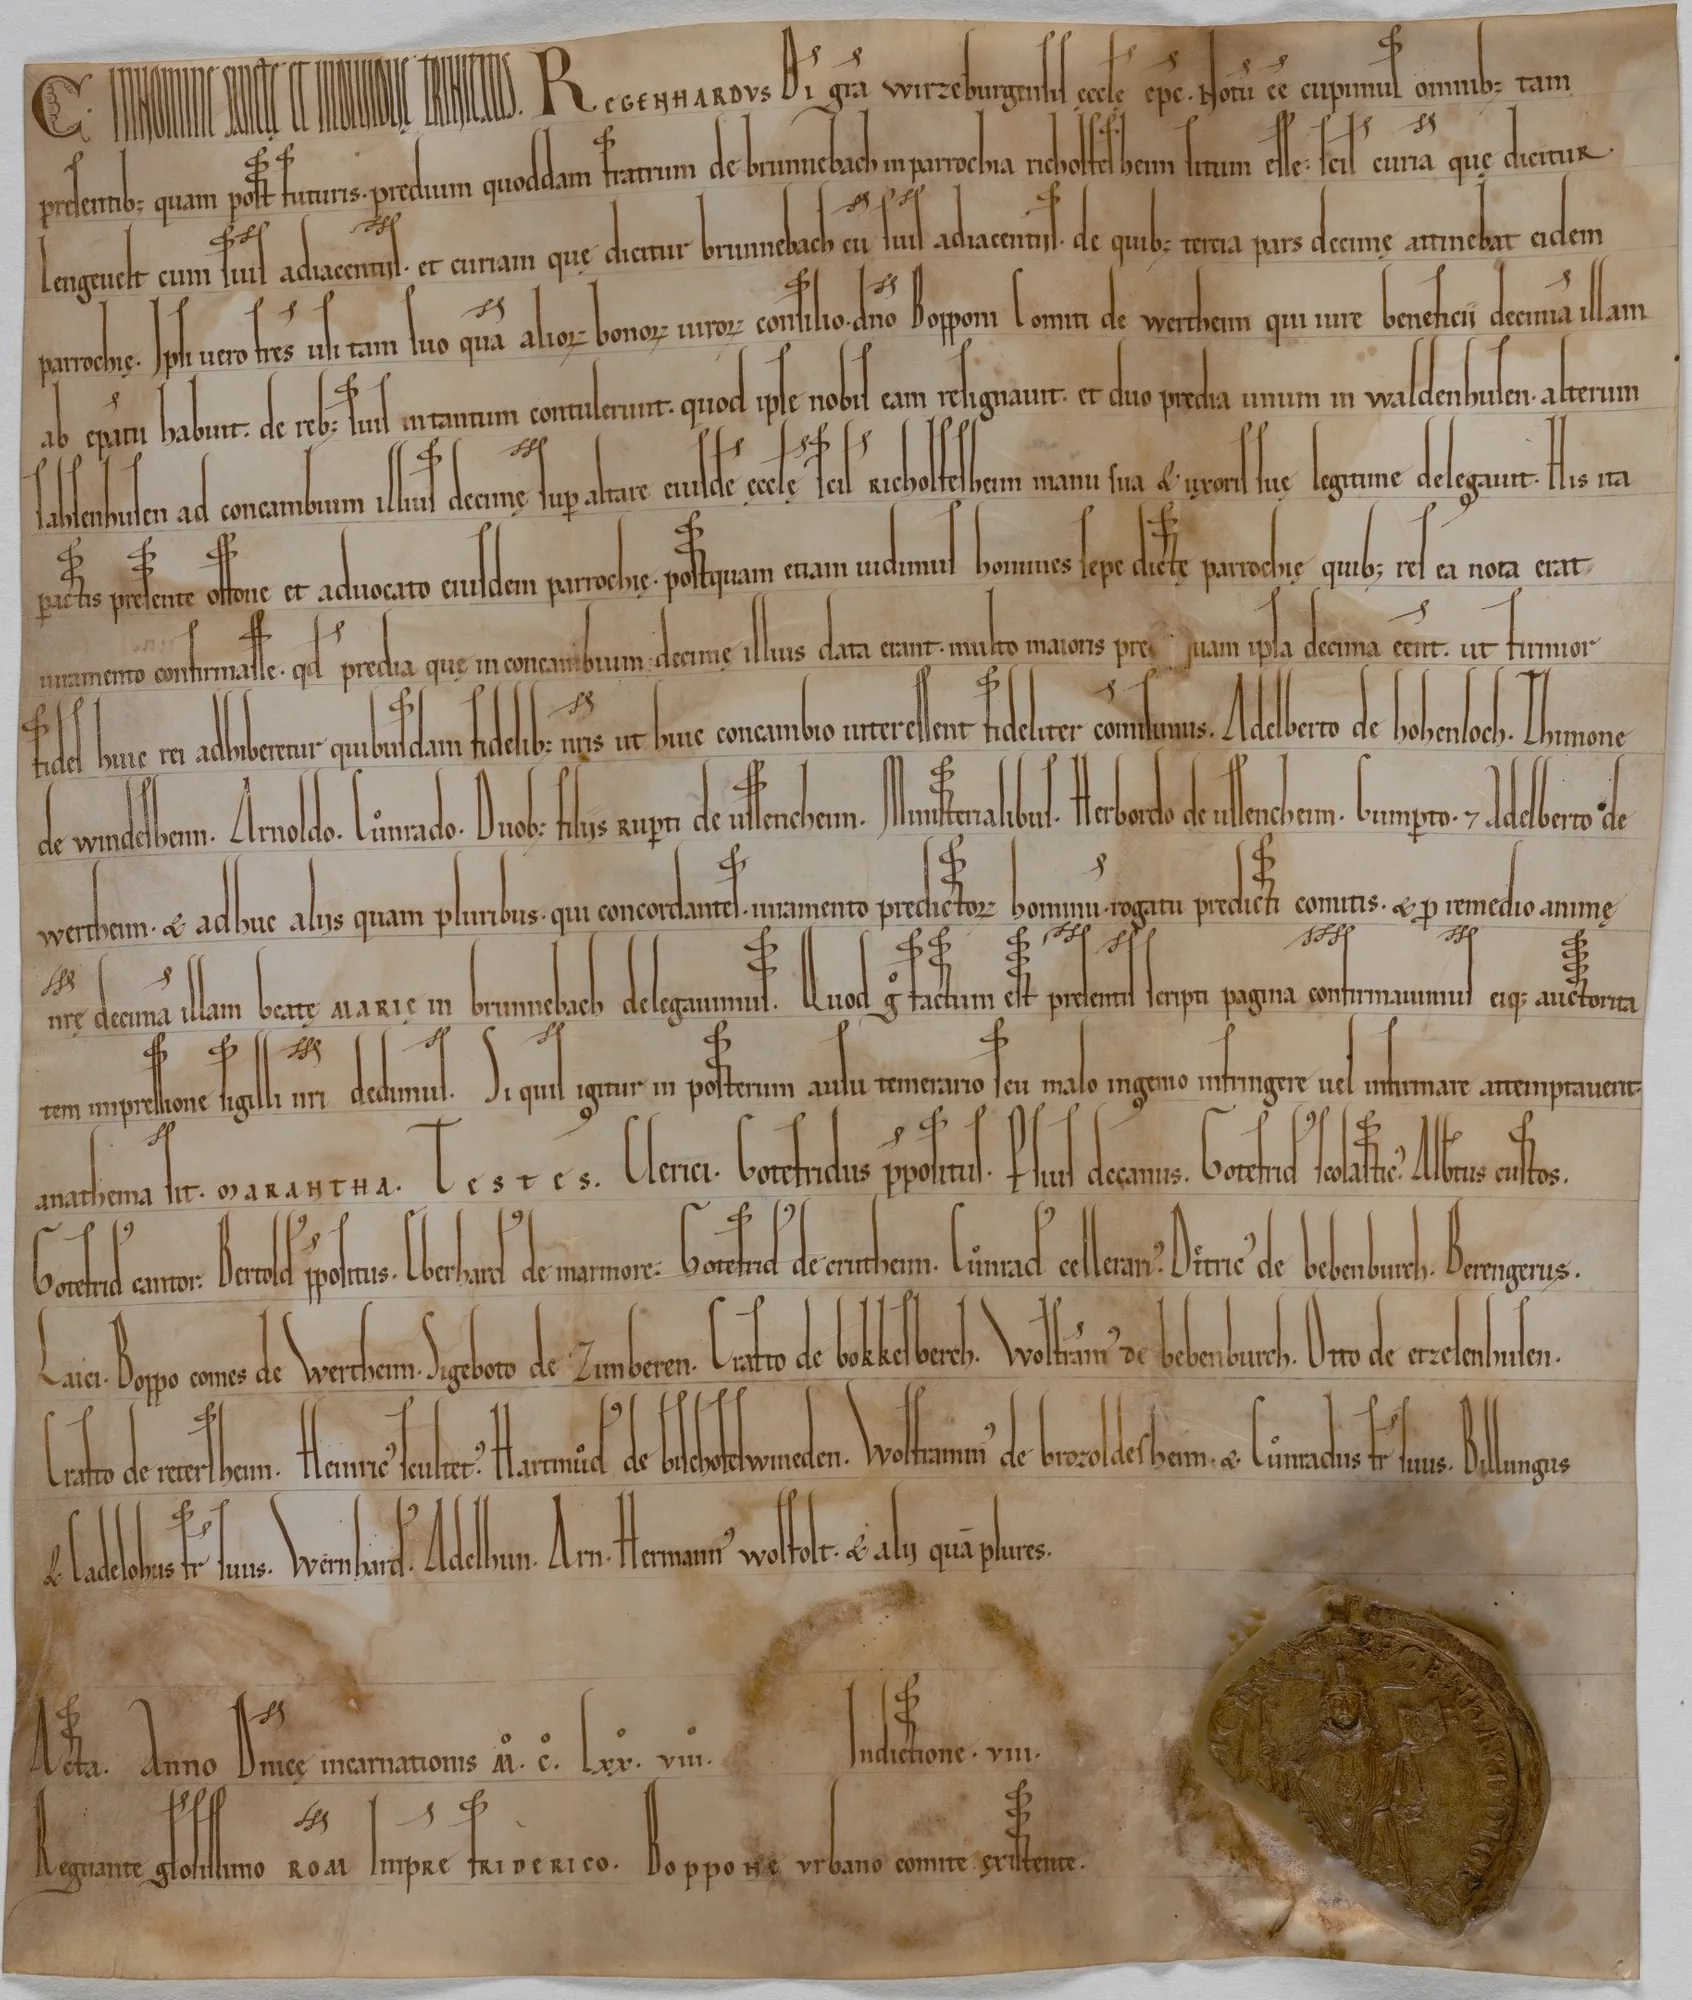 C. IN NOMINE SANCTĘ ET INDIVIDUĘ TRINITATIS. REGENHARDVS Di gra wirzeburgensis ęccle epc. Notu ee cupimus omnib; tam
presentib; quam post futuris. predium quoddam fratrum de brunnebach in parrochia richolfesheim situm esse. scil curia quę dicitur
lengevelt cum suis adiacentiis. et curiam quę dicitur brunnebach cu suis adiacentiis. de quib; tercia pars decimę attinebat eidem
parrochię. Ipsi uero frēs usi tam suo quā alioꝝ bonoꝝ uiroꝝ consilio. dno Bopponi Comiti de wertheim qui iure beneficii decimā illam
ab epatu habuit. de reb; suis in tantum contulerunt. quod ipse nobis eam resignauit. et duo predia unum in waldenhusen. alterum
sahsenhusen ad concambium illius decimę sup altare eiusdē ęcclę scil Richolfesheim manu sua & uxoris suę legitime delegauit. His ita
pactis presente ottone et aduocato eiusdem parrochię. postquam etiam uidimus homines sepe dictę parrochię quib; res ea nota erat
iuramento confirmasse. qd predia quę in concambium decimę illius data erant. multo maioris ipsa decima eent. ut firmior
fides huic rei adhiberetur quibusdam fidelib; nris ut huic concambio interessent fideliter comisimus. Adelberto de hohenloch. Thimone
de windesheim. Arnoldo. Cůnrado. Duob; filiis Rupti de ussencheim. Ministerialibus. Herbordo de ussencheim. Gumpto. 7 Adelberto de
wertheim. & adhuc aliis quam pluribus. qui concordantes. iuramento predictoꝝ hominū. rogatu predicti comitis. & p remedio animę
nrę decimā illam beatę MARIĘ in brunnebach delegauimus. Quod g factum est presentis scripti pagina confirmauimus eiq; auctorita
tem impressione sigilli nri dedimus. Si quis igitur in posterum ausu temerario seu malo ingenio infringere uel infirmare attemptauerit.
anathema sit. MARANTHA. Testes. Clerici. Gotefridus ppositus. decanus. Gotefrid scolastic. Albtus custos.
Gotefrid cantor. Bertold ppositus. Eberhard de marmore. Gotefrid de crutheim. Cůnrad cellerari. Ditric de bebenburch. Berengerus.
Laici. Boppo comes de Wertheim. Sigeboto de Zimberen. Crafto de bokkesberch. Wolframˀ de bebenburch. Otto de etzelenhusen.
Crafto de retersheim. Heinricˀ scultetˀ. Hartmůd de bischofeswineden. Wolframmˀ de brozoldesheim. & Cůnradus fr suus. Billungus
& ladelohus fr suus. Wernhardˀ. Adelhun. Arn. Hermannˀ wolfolt. & alii quā plures.
Acta. Anno Dnicę incarnationis M. C. Lxx. viii. Indictione. viii.
Regnante glosissimo ROM Impre FRIDERICO. Boppone urbano comite existente.